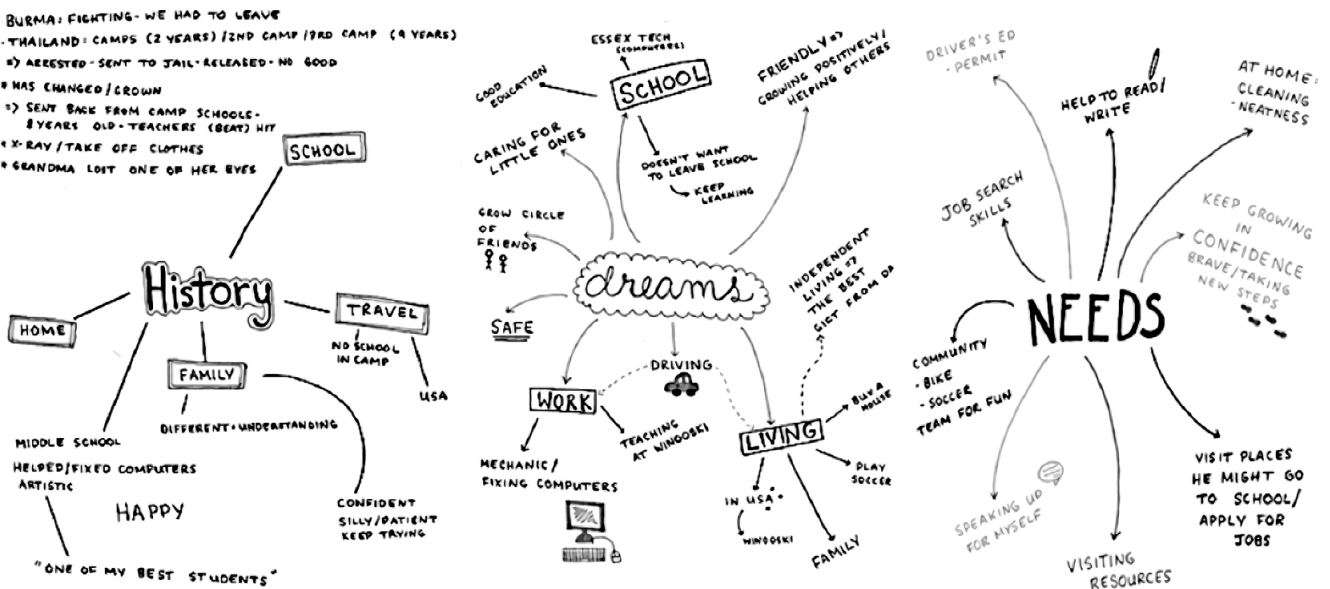 BURMA: FIGTING - WE HAD TO LEAVE
- THAILAND: CAMPS (2 YEARS) / 2ND CAMP / 3RD CAMP (9 YEARS)
=> ARRESTED - SENT TO JAIL - RELEASED - NO GOOD
* HAS CHANGED / GROWN
=> SENT BACK FROM CAMP SCHOOLS -
8 YEARS OLD - TEACHERS (BEAT) HIT
* X-RAY / TAKE OFF CLOTHES
* GRANDMA LOST ONE OF HER EYES
SCHOOL
History
HOME
TRAVEL
NO SCHOOL
IN CAMP
USA
FAMILY
DIFFERENT + UNDERSTANDING
MIDDLE SCHOOL
HELPED/FIXED COMPUTERS
ARTISTIC
HAPPY
CONFIDENT
SILLY/PATIENT
KEEP TRYING
"ONE OF MY BEST STUDENTS"
ESSEX TECH
(COMPUTERS)
SCHOOL
GOOD
EDUCATION
FRIENDLY =>
GROWING POSITIVELY/
HELPING OTHERS
CARING FOR
LITTLE ONES
DOESN'T WANT
TO LEAVE SCHOOL
KEEP
LEARNING
GROW CIRCLE
OF
FRIENDS
dreams
INDEPENDENT
LIVING =>
THE BEST
GIFT FROM DA
SAFE
DRIVING
WORK
TEACHING
AT WINOOSKI
MECHANIC /
FIXING COMPUTERS
LIVING
BUY A
HOUSE
PLAY
SOCCER
IN USA
WINOOSKI
FAMILY
DRIVER'S ED
- PERMIT
HELP TO READ/
WRITE
AT HOME:
CLEANING
- NEATNESS
JOB SEARCH
SKILLS
KEEP GROWING
IN
CONFIDENCE
BRAVE/TAKING
NEW STEPS
NEEDS
COMMUNITY
- BIKE
- SOCCER
TEAM FOR FUN
SPEAKING UP
FOR MYSELF
VISITING
RESOURCES
VISIT PLACES
HE MIGHT GO
TO SCHOOL/
APPLY FOR
JOBS